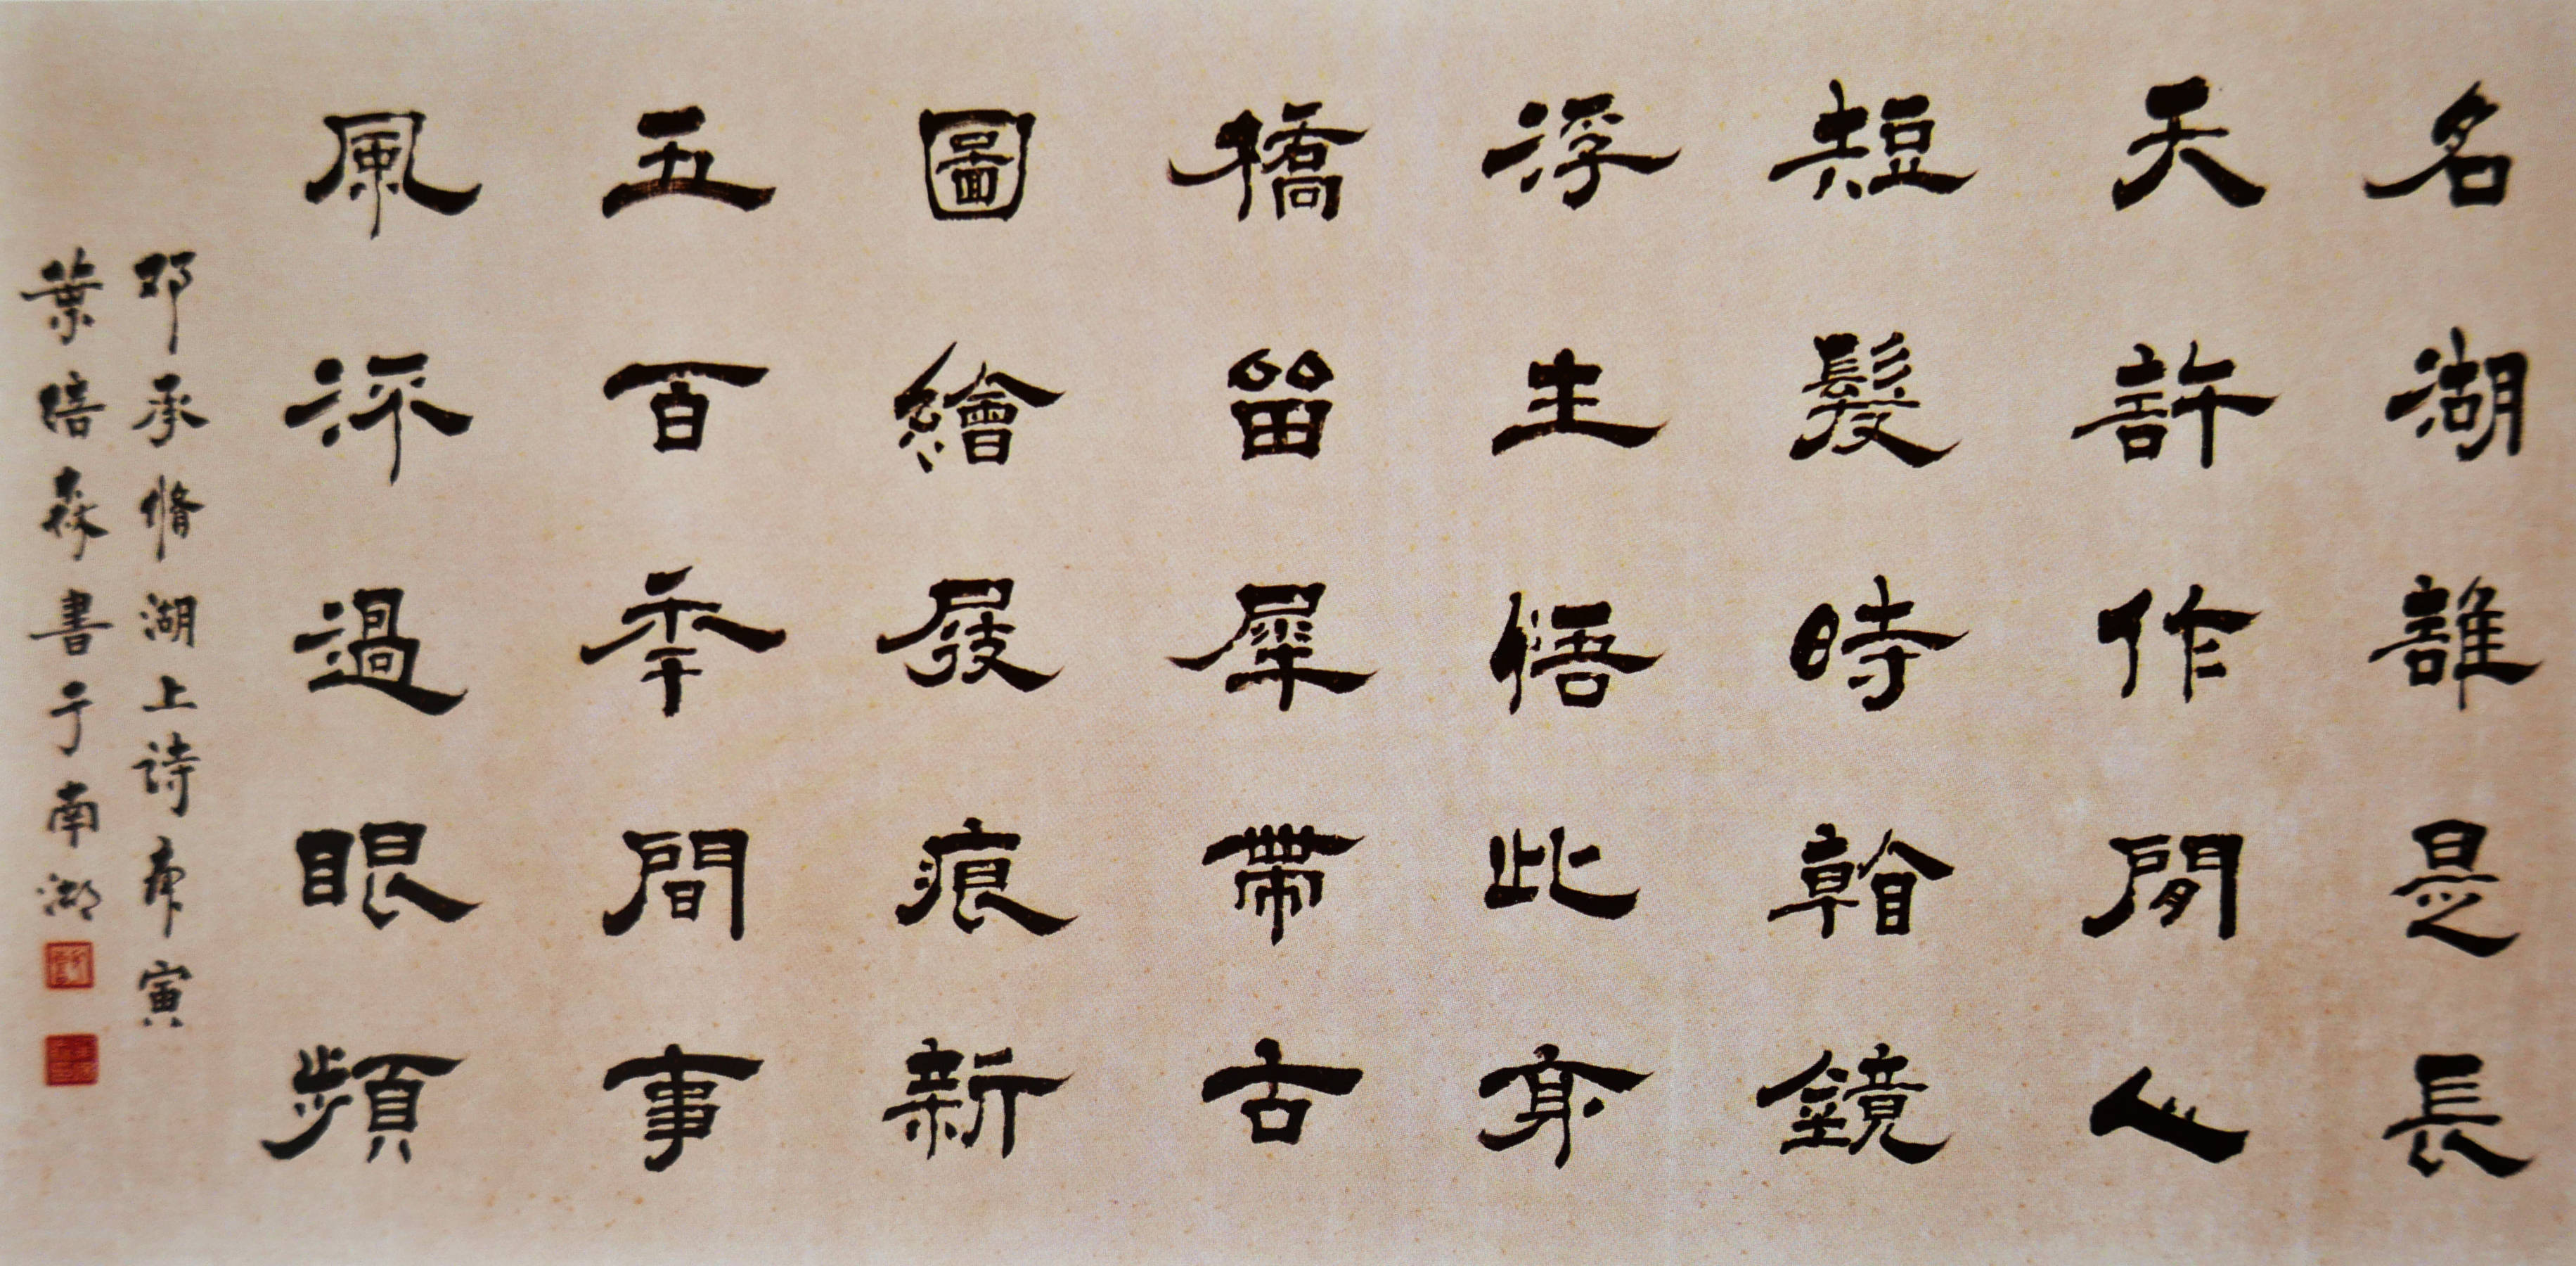 名湖誰是長
天許作閒人
短髮時簪鏡
浮生悟此身
橋留犀帶古
圖繪屐痕新
五百年間事
風泙過眼頻
邓承脩湖上诗庚寅
葉培森書于南湖